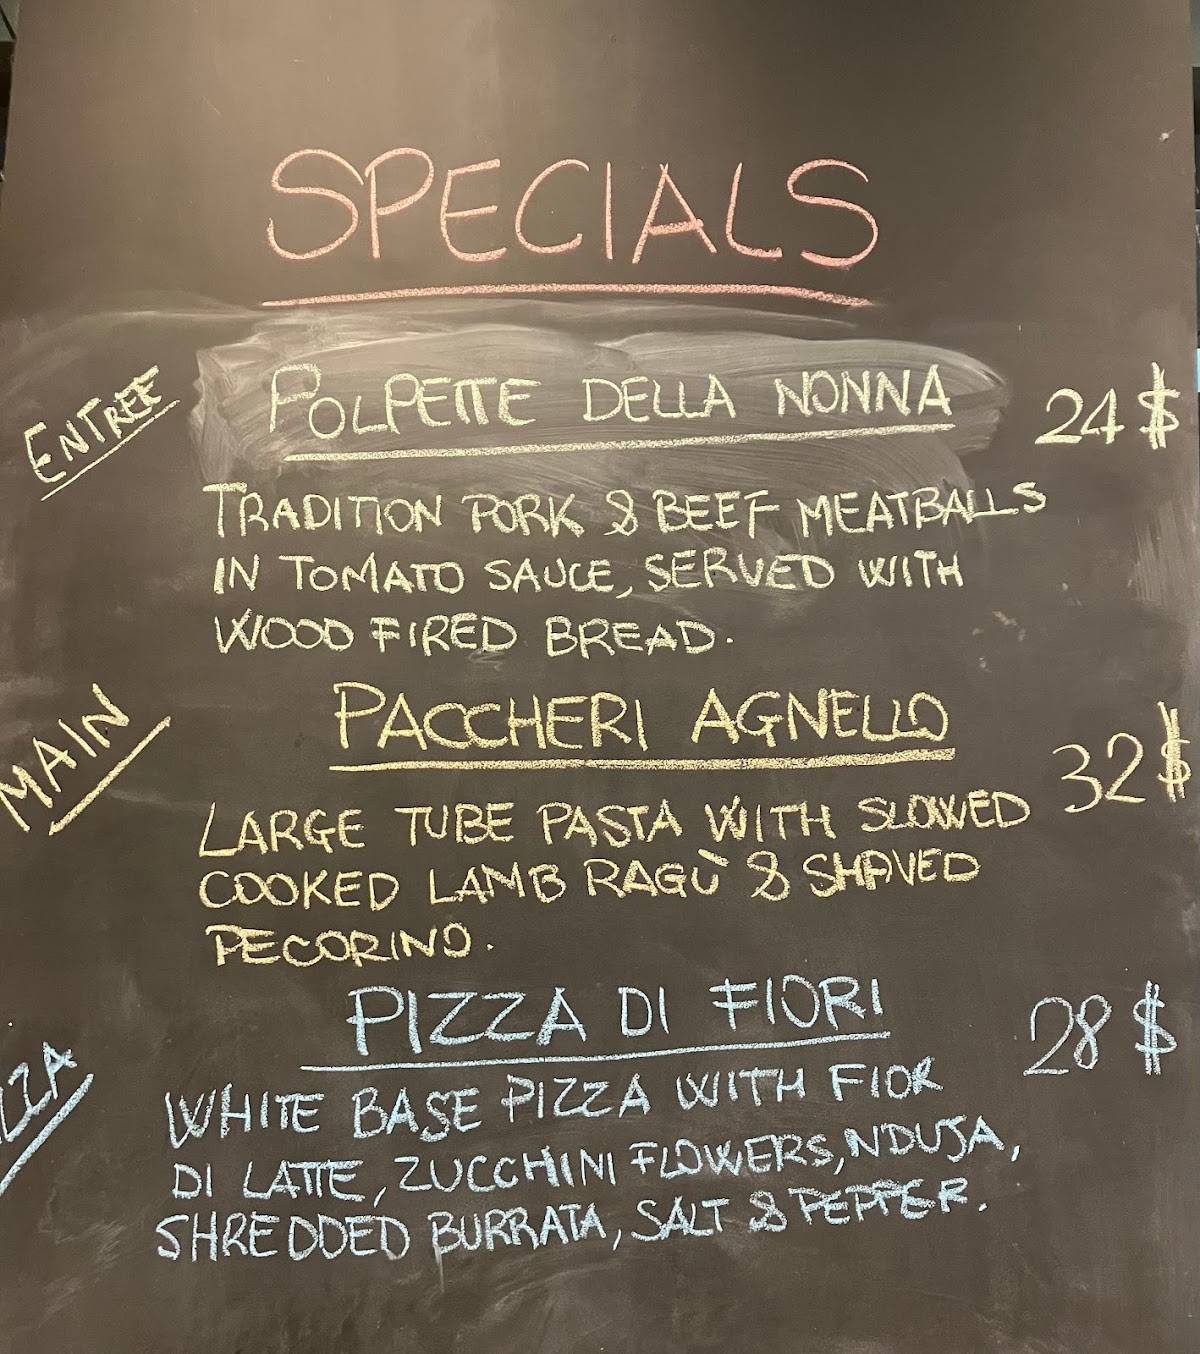 SPECIALS
ENTREE
POLPETTE DELLA NONNA 24$
TRADITION PORK & BEEF MEATBALLS
IN TOMATO SAUCE, SERVED WITH
WOOD FIRED BREAD.
MAIN
PACCHERI AGNELLO 32$
LARGE TUBE PASTA WITH SLOWED
COOKED LAMB RAGÙ & SHAVED
PECORINO.
ZZA
PIZZA DI FIORI 28$
WHITE BASE PIZZA WITH FIOR
DI LATTE, ZUCCHINI FLOWERS, NDUJA,
SHREDDED BURRATA, SALT & PEPPER.